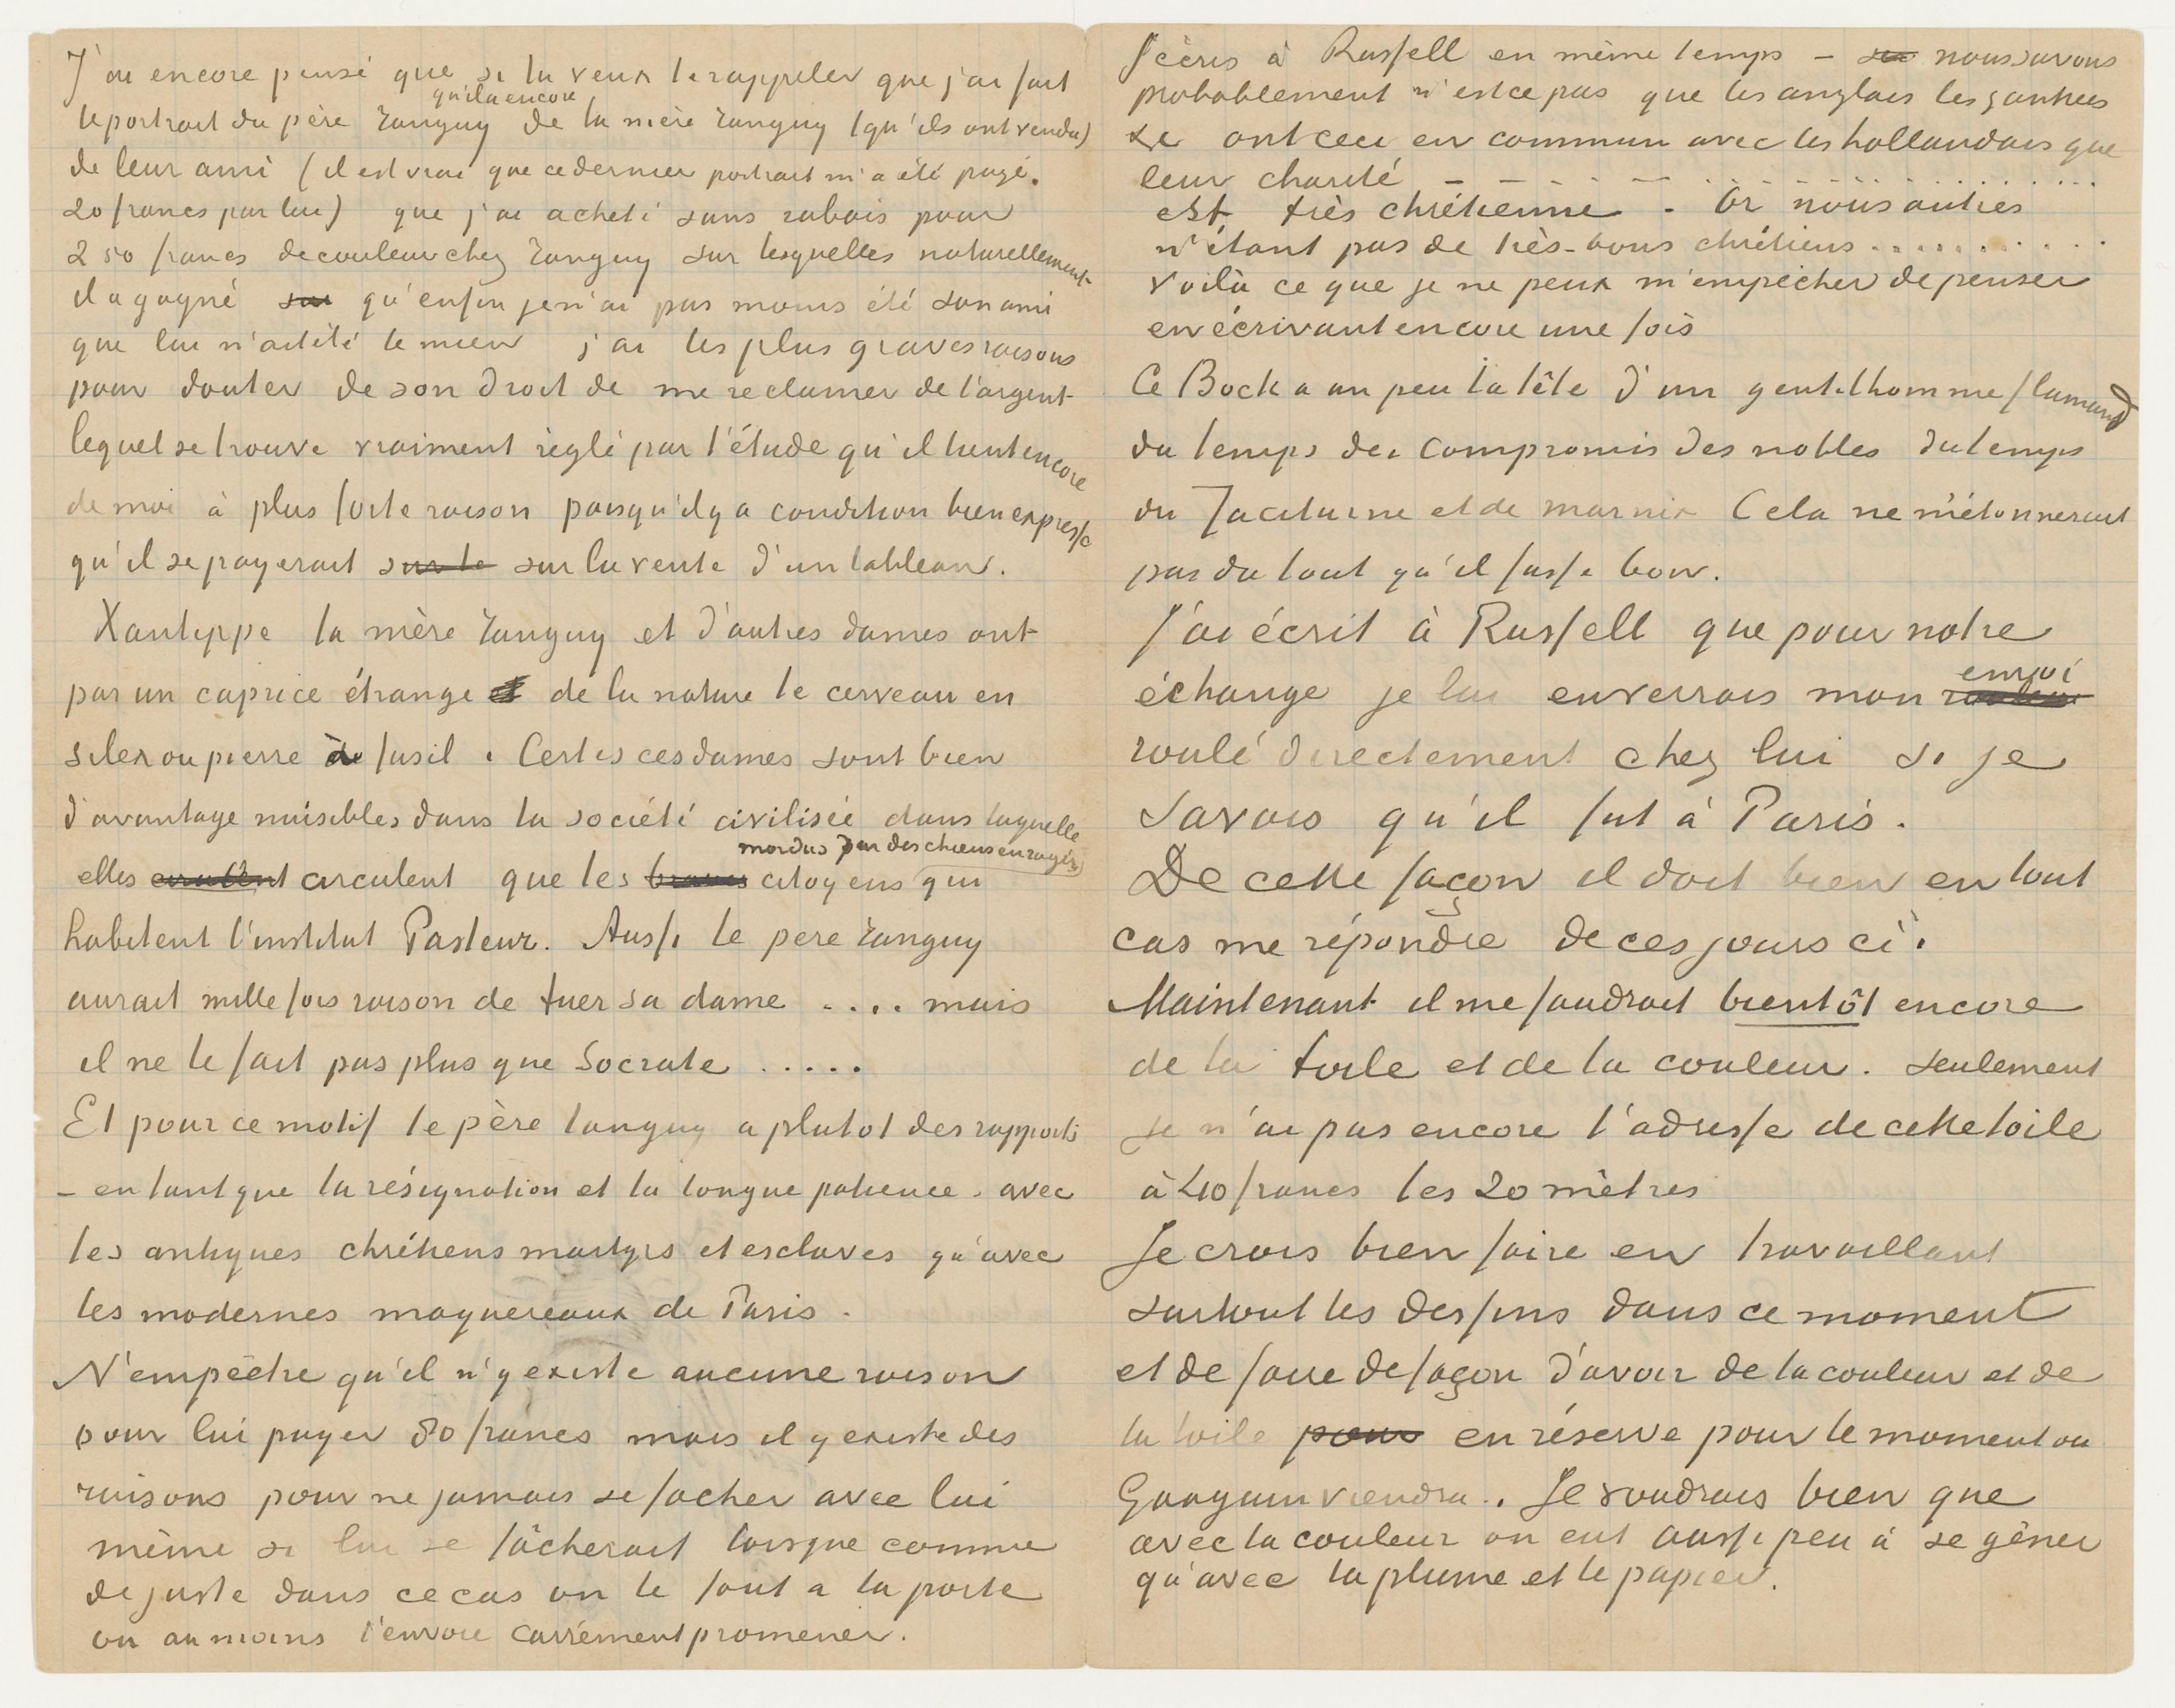 J'ai encore pensé que si tu veux te rappeler que j'ai fait
qu'il a encore
le portrait du père Tanguy de la mère Tanguy (qu'ils ont vendu)
de leur ami (il est vrai que ce dernier portrait m'a été payé.
20 francs par lui) que j'ai acheté sans rabais pour
250 francs de couleur chez Tanguy sur lesquelles naturellement
il a gagné sur qu'enfin je n'ai pas moins été son ami
que lui n'a été le mien j'ai les plus graves raisons
pour douter de son droit de me reclamer de l'argent
lequel se trouve vraiment reglé par l'étude qu'il tient encore
de moi à plus forte raison puisqu'il y a condition bien expresse
qu'il se payerait sur le sur la vente d'un tableau.
Xantippe la mère Tanguy et d'autres dames ont
par un caprice étrange et de la nature le cerveau en
silex ou pierre à fusil. Certes ces dames sont bien
d'avantage nuisibles dans la société civilisée dans laquelle
mordus par des chiens enragés
elles circulent circulent que les braves citoyens qui
habitent l'institut Pasteur. Aussi le pere Tanguy
aurait mille fois raison de tuer sa dame .... mais
il ne le fait pas plus que Socrate .....
Et pour ce motif le père Tanguy a plutot des rapports
– en tant que la résignation et la longue patience – avec
les antiques chrétiens martyrs et esclaves qu'avec
les modernes maquereaux de Paris.
N'empêche qu'il n'y existe aucune raison
pour lui payer 80 francs mais il y existe des
raisons pour ne jamais se facher avec lui
même si lui se fâcherait lorsque comme
de juste dans ce cas on le fout a la porte
ou au moins l'envoie carrément promener.
J'écris à Russell en même temps – nous savons
probablement n'est ce pas que les anglais les yankees
ont ceci en commun avec les hollandais que
leur charité – – – – – .................
est très chrétienne. Or nous autres
n'étant pas de très-bons chrétiens...........
Voilà ce que je ne peux m'empêcher de penser
en écrivant encore une fois
Ce Bock a un peu la tête d'un gentilhomme flamand
du temps des Compromis des nobles du temps
du Taciturne et de marnix Cela ne m'étonnerait
pas du tout qu'il fusse bon.
J'ai écrit à Russell que pour notre
envoi
échange je lui enverrais mon rouleau
roulé directement chez lui si je
savais qu'il fut à Paris.
De cette façon il doit bien en tout
cas me répondre de ces jours ci.
Maintenant il me faudrait bientôt encore
de la toile et de la couleur. Seulement
je n'ai pas encore l'adresse de cette toile
à 40 francs les 20 mètres
Je crois bien faire en travaillant
surtout les dessins dans ce moment
et de faire de façon d'avoir de la couleur et de
la toile pour en réserve pour le moment ou
Gauguin viendra. Je voudrais bien que
avec la couleur on eut aussi peu à se gêner
qu'avec la plume et le papier.